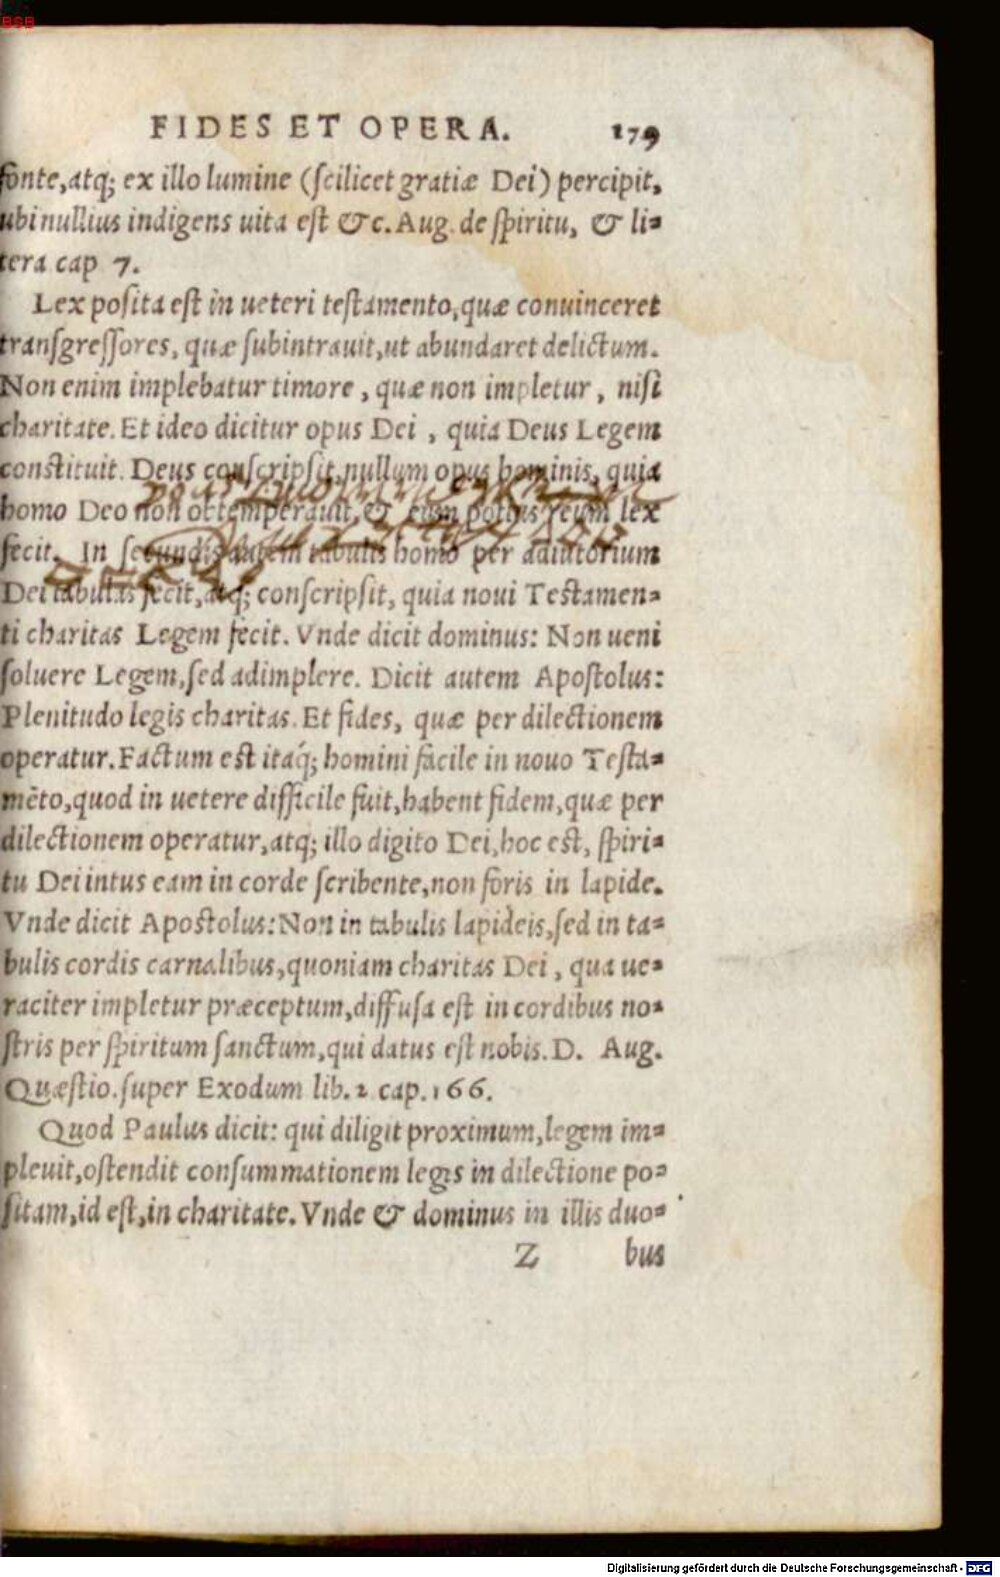 BSB
FIDES ET OPERA. 179
fonte,atq; ex illo lumine (scilicet gratiæ Dei) percipit,
ubi nullius indigens uita est &c. Aug. de spiritu, & li-
tera cap 7.
Lex posita est in ueteri testamento,quæ conuinceret
transgressores, quæ subintrauit,ut abundaret delictum.
Non enim implebatur timore , quæ non impletur , nisi
charitate. Et ideo dicitur opus Dei , quia Deus Legem
constituit. Deus conscripsit,nullum opus hominis, quia
homo Deo non obtemperauit, & eum potius reum lex
fecit. In secundis autem tabulis homo per adiutorium
Dei tabulas fecit,atq; conscripsit, quia noui Testamen-
ti charitas Legem fecit. Vnde dicit dominus: Non ueni
soluere Legem,sed adimplere. Dicit autem Apostolus:
Plenitudo legis charitas. Et fides, quæ per dilectionem
operatur. Factum est itaq; homini facile in nouo Testa-
mēto,quod in uetere difficile fuit,habent fidem,quæ per
dilectionem operatur,atq; illo digito Dei,hoc est, spiri-
tu Dei intus eam in corde scribente,non foris in lapide.
Vnde dicit Apostolus: Non in tabulis lapideis,sed in ta-
bulis cordis carnalibus,quoniam charitas Dei , qua ue-
raciter impletur præceptum,diffusa est in cordibus no-
stris per spiritum sanctum,qui datus est nobis. D. Aug.
Quæstio. super Exodum lib. 2 cap. 166.
Quod Paulus dicit: qui diligit proximum,legem im-
pleuit,ostendit consummationem legis in dilectione po-
sitam,id est,in charitate. Vnde & dominus in illis duo-
Z bus
Digitalisierung gefördert durch die Deutsche Forschungsgemeinschaft - DFG